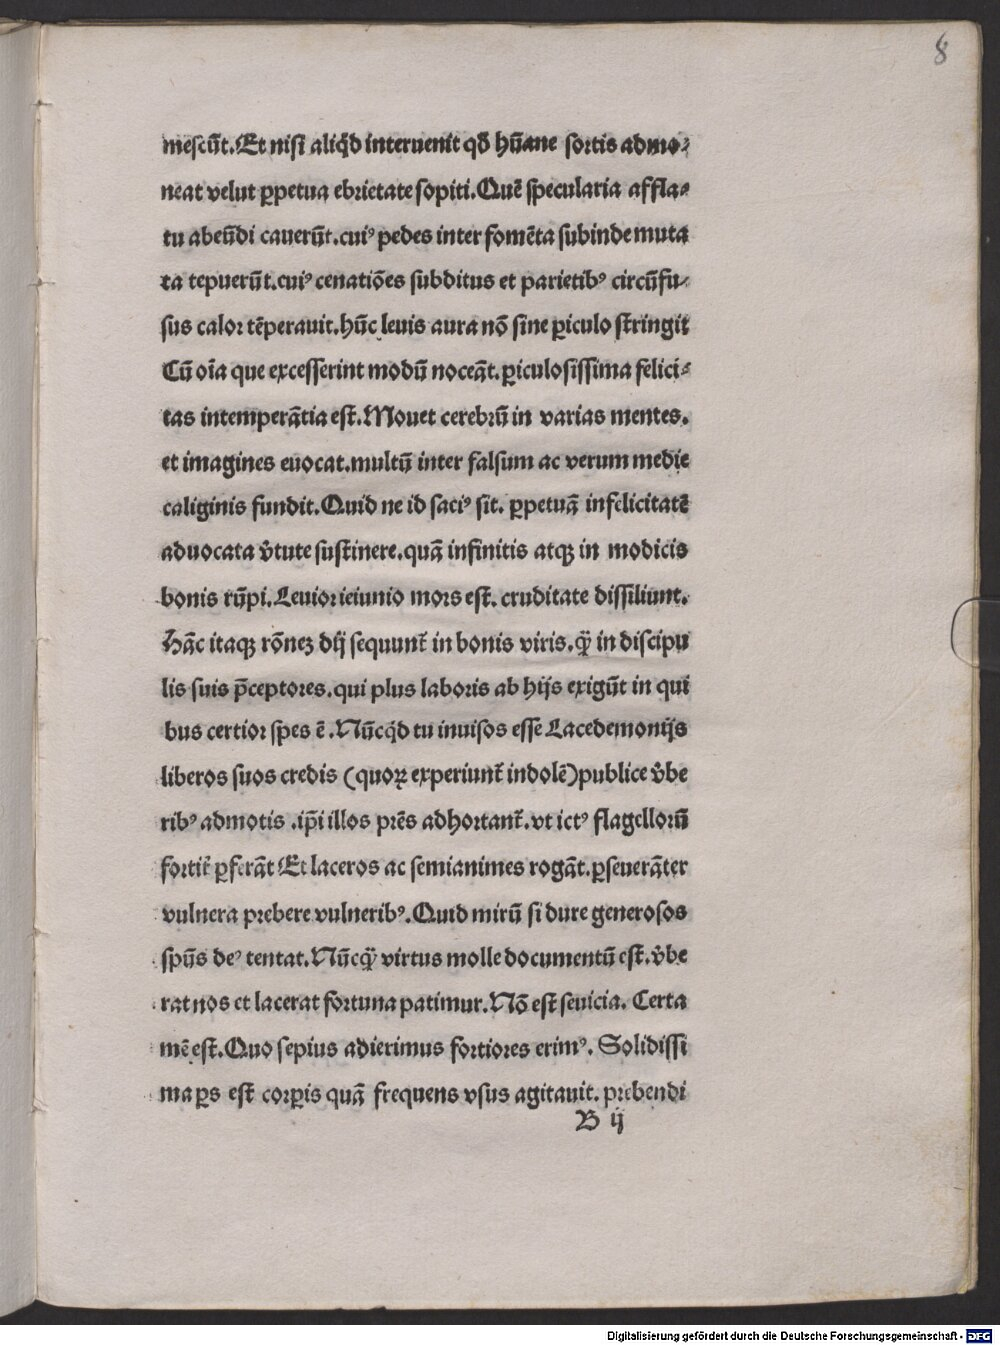 8
mescūt. Et nisi aliqͥd interuenit qđ hūane sortis admo⸗
neat velut ꝑpetua ebrietate sopiti. Quē specularia affla⸗
tu abeūdi cauerūt. cuiꝰ pedes inter fomēta subinde muta
ta tepuerūt. cuiꝰ cenatiōes subditus et parietibꝰ circūfu⸗
sus calor tēperauit. hūc leuis aura nō sine ꝑiculo stringit
Cū oīa que excesserint modū noceāt. ꝑiculosissima felici⸗
tas intemperātia est. Mouet cerebrū in varias mentes.
et imagines euocat. multū inter falsum ac verum medie
caliginis fundit. Quid ne id saciꝰ sit. ꝑpetuā infelicitatē
aduocata v̓tute sustinere. quā infinitis atqꝫ in modicis
bonis rūpi. Leuior ieiunio mors est. cruditate dissiliunt.
Hāc itaqꝫ rōneꝫ dij sequunt̄ in bonis viris. qͣ̄ in discipu
lis suis p̄ceptores. qui plus laboris ab hijs exigūt in qui
bus certior spes ē. Nūcqͥd tu inuisos esse Lacedemonijs
liberos suos credis (quoꝝ experiunt̄ indolē) publice v̓be
ribꝰ admotis. ip̄i illos prēs adhortant̄. vt ictꝰ flagellorū
fortit̄ ꝑferāt Et laceros ac semianimes rogāt. ꝑseuerāter
vulnera prebere vulneribꝰ. Quid mirū si dure generosos
spūs deꝰ tentat. Nūcqͣ̄ virtus molle documentū est. v̓be
rat nos et lacerat fortuna patimur. Nō est seuicia. Certa
mē est. Quo sepius adierimus fortiores erimꝰ. Solidissi
ma ꝑs est corꝑis quā frequens vsus agitauit. prebendi
B ij
Digitalisierung gefördert durch die Deutsche Forschungsgemeinschaft - DFG